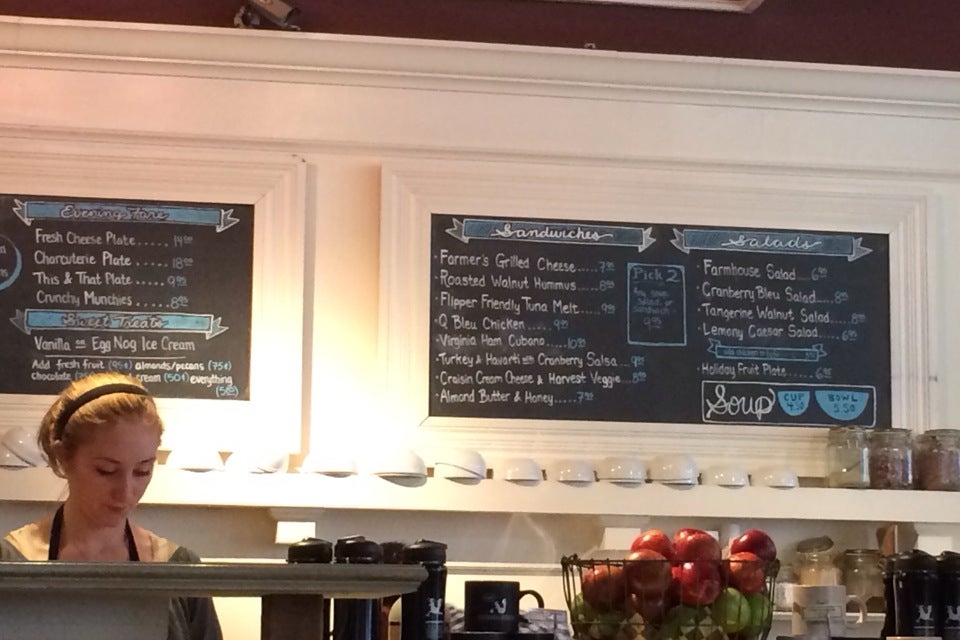 Evening Fare
Fresh Cheese Plate..... 14.00
Charcuterie Plate..... 18.00
This & That Plate..... 9.00
Crunchy Munchies..... 8.00
Sweet Treats
Vanilla or Egg Nog Ice Cream
Add fresh fruit (95¢) almonds/pecans (75¢)
chocolate cream (50¢) everything
Sandwiches
Farmer's Grilled Cheese....7
Roasted Walnut Hummus....8
Flipper Friendly Tuna Melt....9
Q Bleu Chicken....9
Virginia Ham Cubano....10
Turkey & Havarti with Cranberry Salsa..9
Craisin Cream Cheese & Harvest Veggie...8
Almond Butter & Honey.....7
Pick 2
Salads
Farmhouse Salad...6
Cranberry Bleu Salad....8
Tangerine Walnut Salad....8
Lemony Caesar Salad....6
Holiday Fruit Plate....6
Soup CUP 4.50 BOWL 5.50